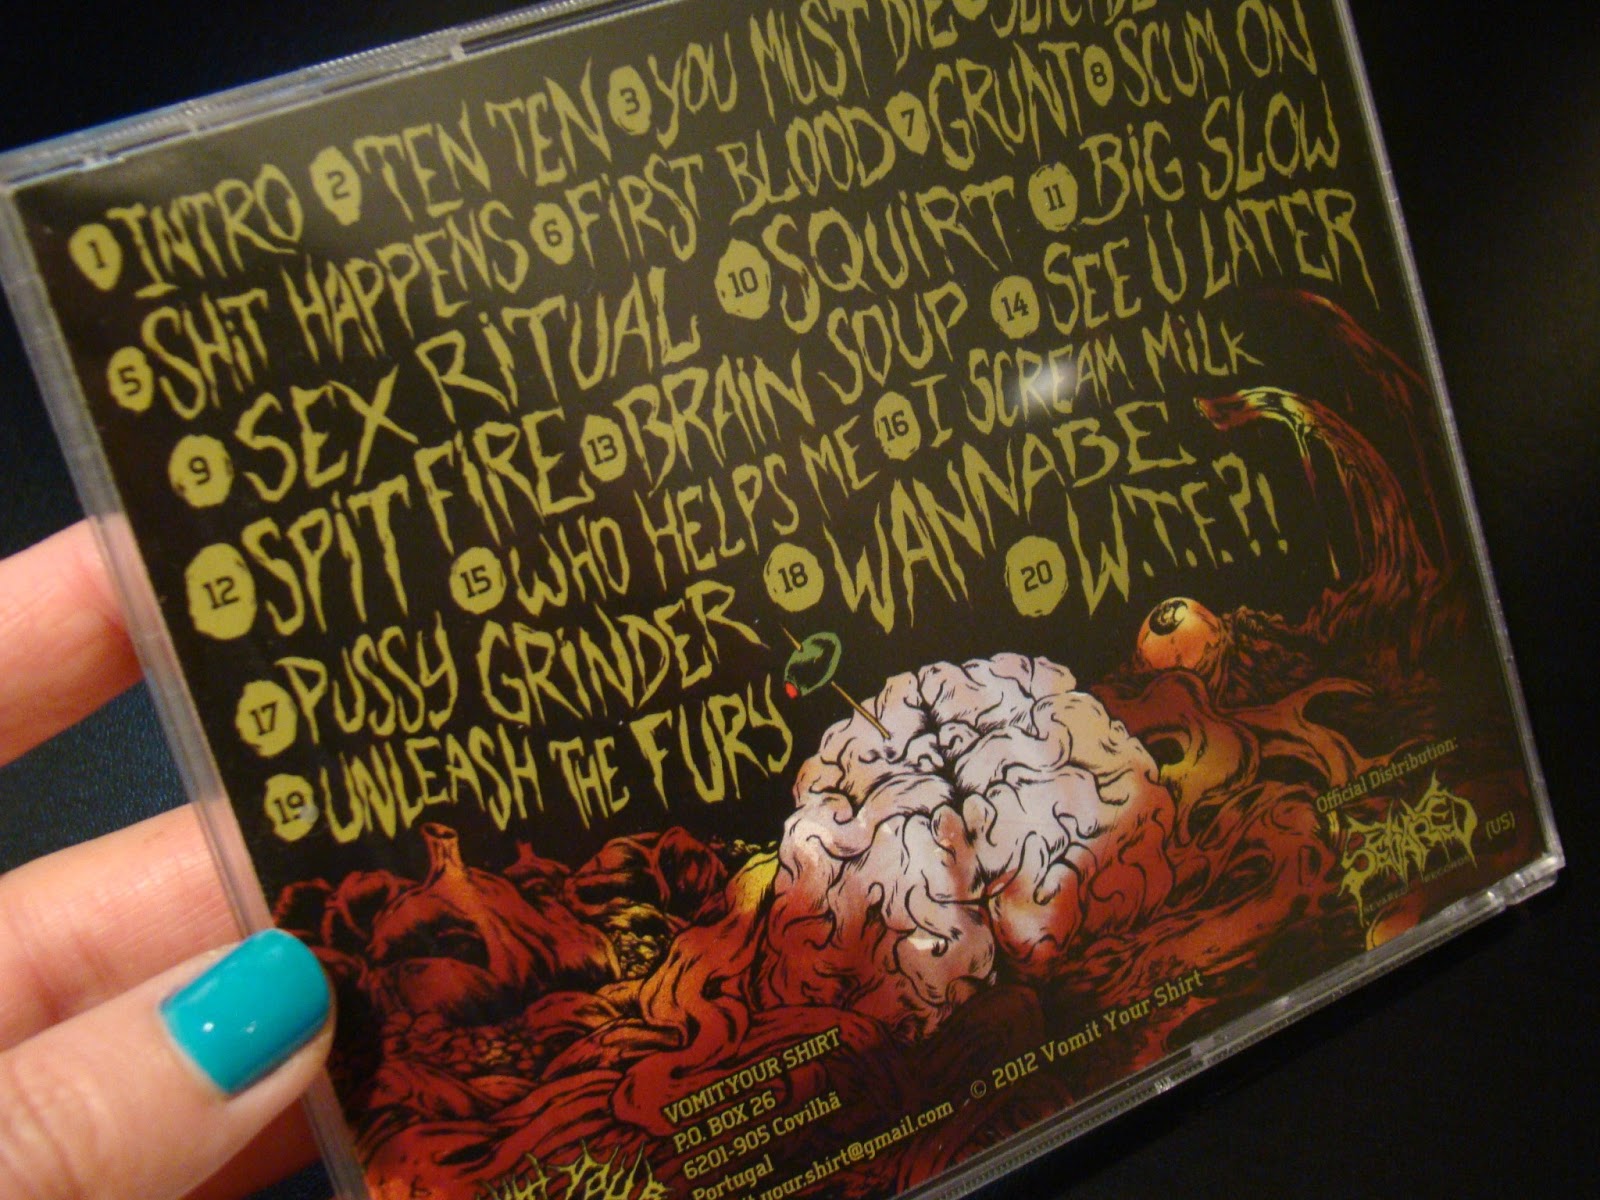 1 INTRO 2 TEN TEN 3 YOU MUST DIE
5 SHiT HAPPENS 6 FiRST BLOOD 7 GRUNT 8 SCUM ON
9 SEX RiTUAL 10 SQUiRT 11 BiG SLOW
12 SPiTFiRE 13 BRAiN SOUP 14 SEE U LATER
15 WHO HELPS ME 16 I SCREAM MiLK
17 PUSSY GRiNDER 18 WANNABE
19 UNLEASH THE FURY 20 W.T.F.?!
Official Distribution:
SEVARED
(US)
SEVARED RECORDS
VOMITYOUR SHIRT
P.O. BOX 26
6201-905 Covilhã
Portugal
your.shirt@gmail.com
© 2012 Vomit Your Shirt
YOUR